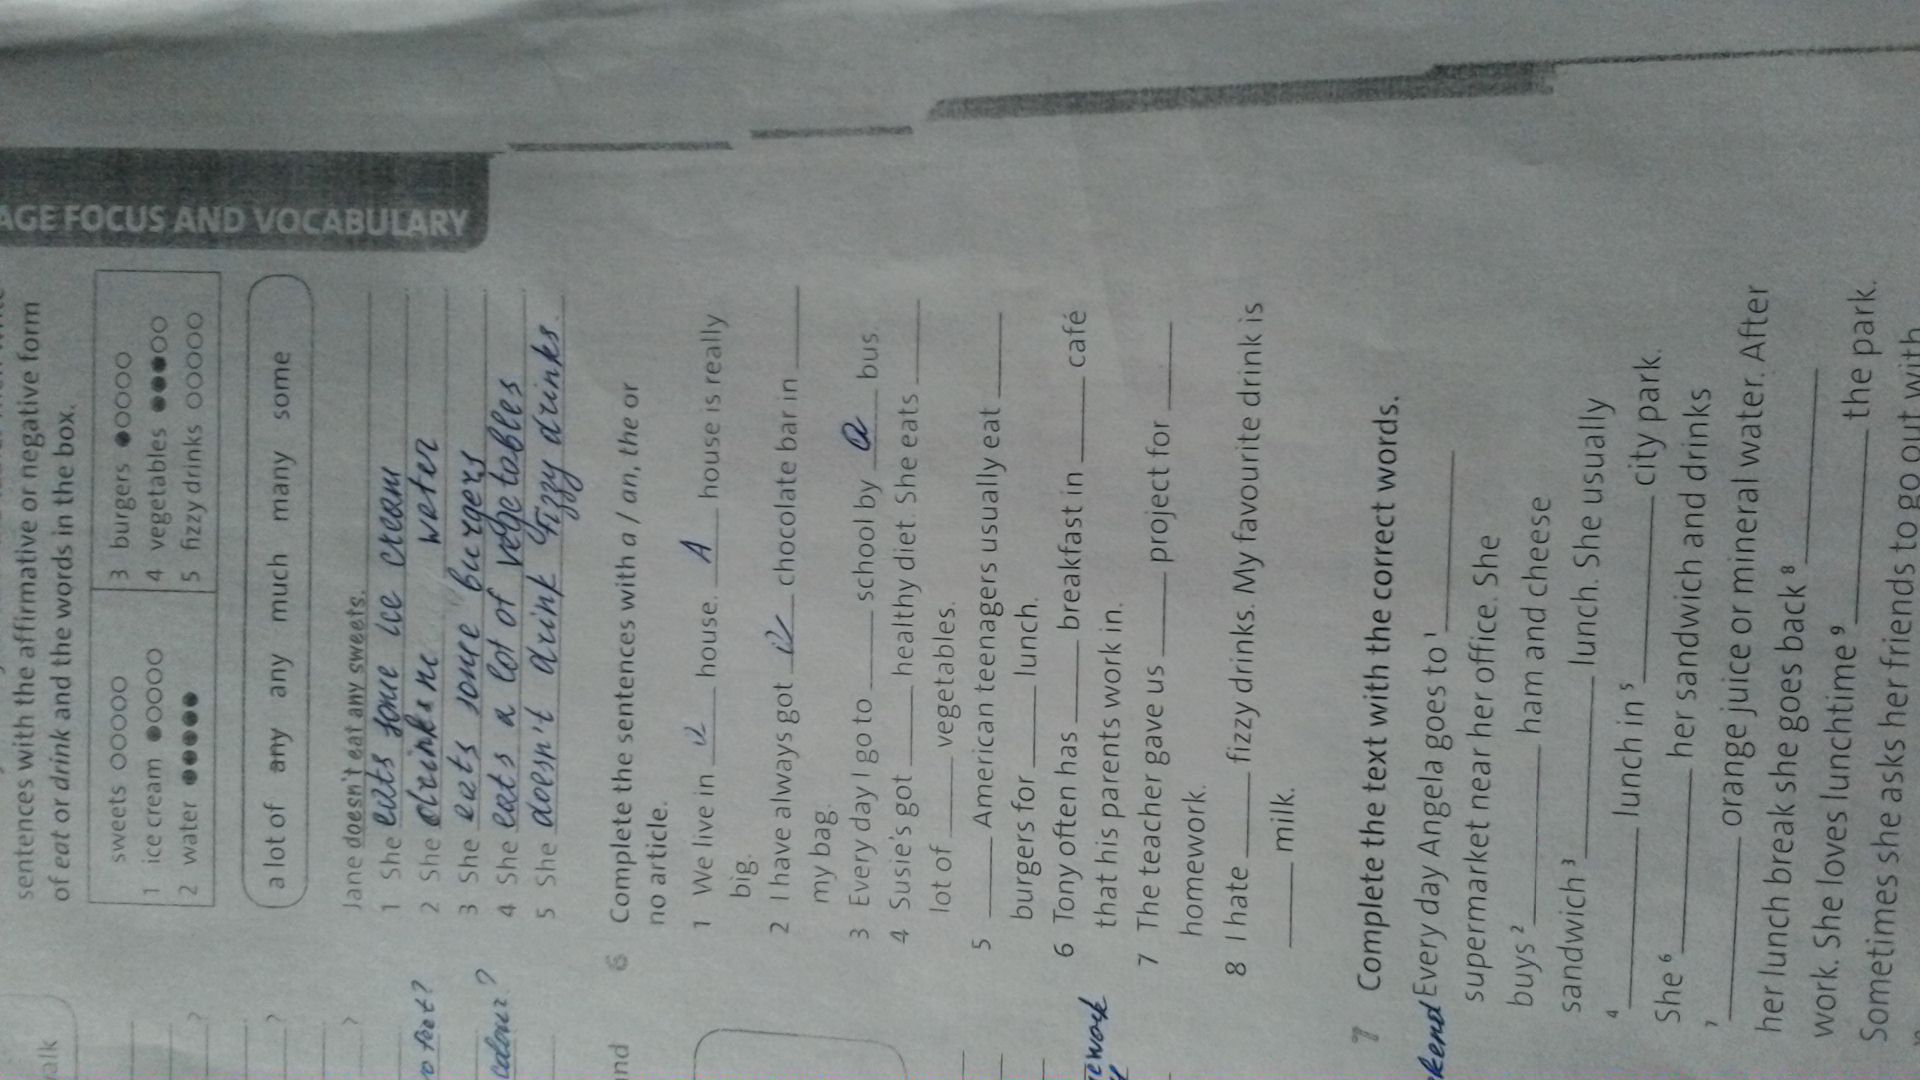 AGE FOCUS AND VOCABULARY
sentences with the affirmative or negative form
of eat or drink and the words in the box.
sweets ○○○○○
1 ice cream ●○○○○
2 water ●●●●●
3 burgers ●○○○○
4 vegetables ●●●○○
5 fizzy drinks ○○○○○
a lot of any any much many some
Jane doesn't eat any sweets.
1 She eats some ice cream
2 She drinks water
3 She eats some burgers
4 She eats a lot of vegetables
5 She doesn't drink fizzy drinks.
6 Complete the sentences with a / an, the or
no article.
1 We live in ____ house. A house is really
big.
2 I have always got ____ chocolate bar in ____
my bag.
3 Every day I go to ____ school by a bus.
4 Susie's got ____ healthy diet. She eats ____
lot of ____ vegetables.
5 ____ American teenagers usually eat ____
burgers for ____ lunch.
6 Tony often has ____ breakfast in ____ café
that his parents work in.
7 The teacher gave us ____ project for ____
homework.
8 I hate ____ fizzy drinks. My favourite drink is
____ milk.
7 Complete the text with the correct words.
Every day Angela goes to 1 ____
supermarket near her office. She
buys 2 ____ ham and cheese
sandwich 3 ____ lunch. She usually
4 ____ lunch in 5 ____ city park.
She 6 ____ her sandwich and drinks
7 ____ orange juice or mineral water. After
her lunch break she goes back 8 ____
work. She loves lunchtime 9 ____ the park.
Sometimes she asks her friends to go out with
alk
?
?
?
feet?
colour?
nd
ework
kend